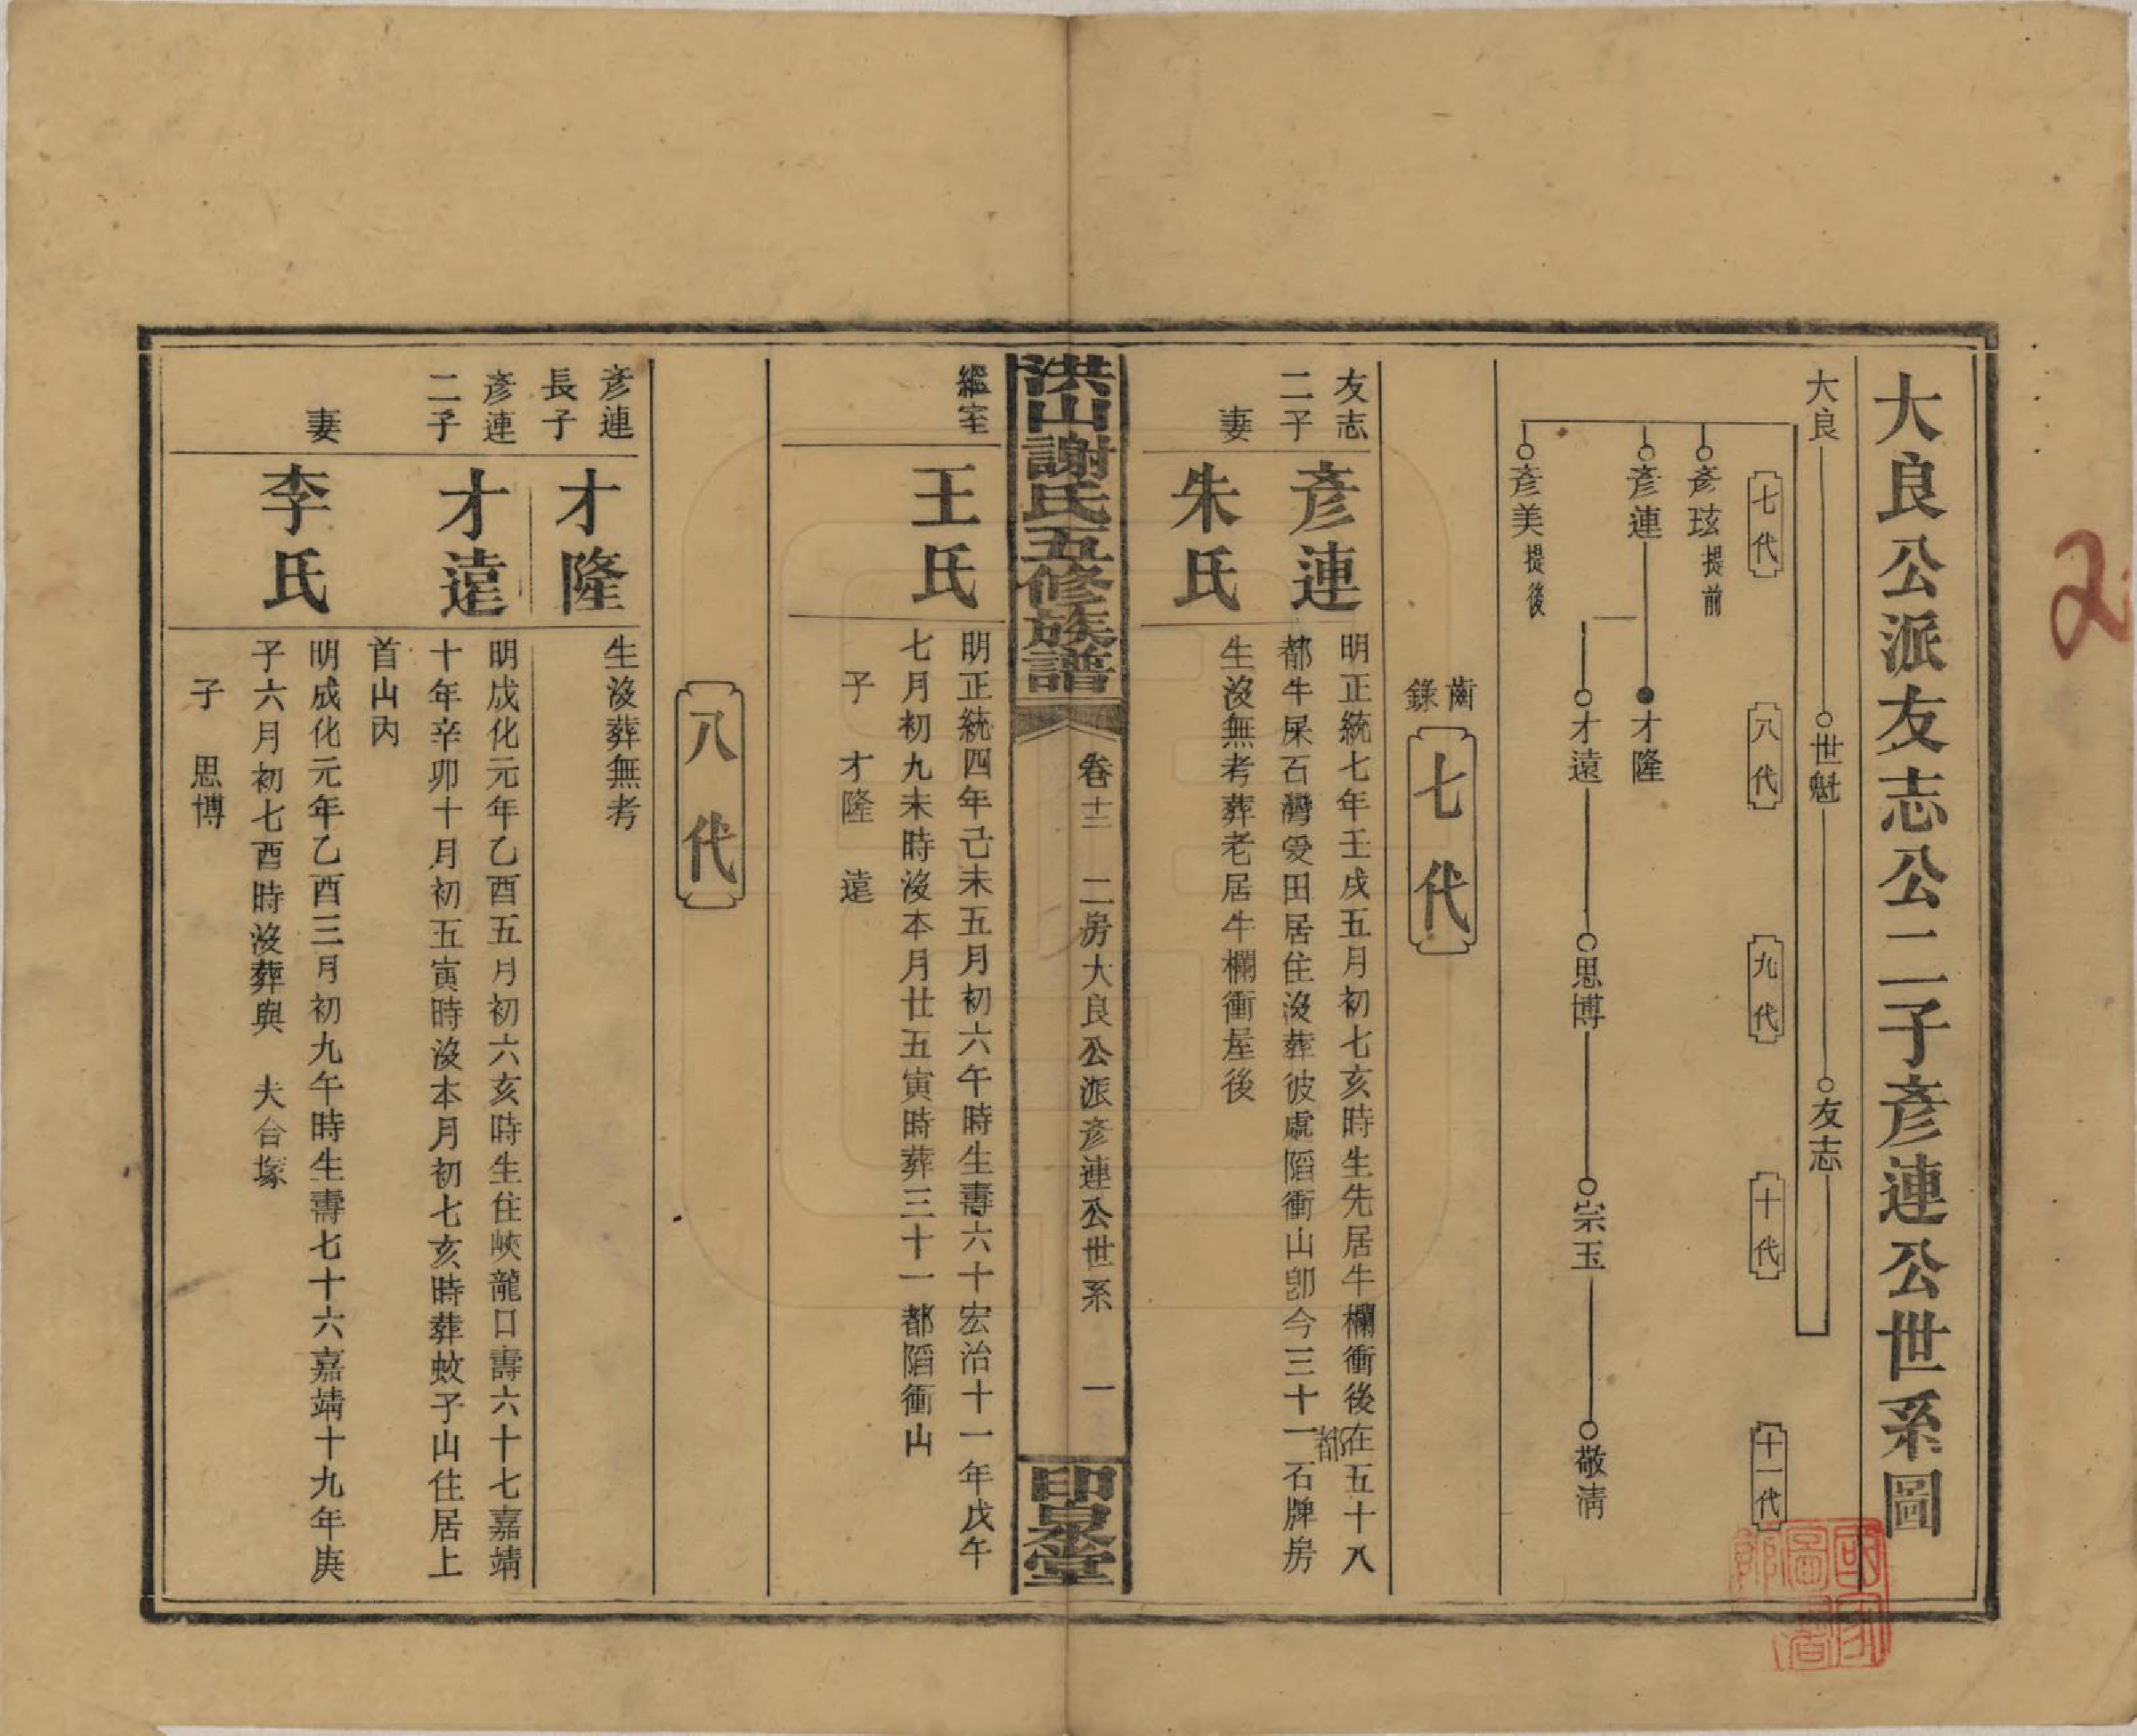 大良公派友志公二子彥連公世系圖
大良
世魁
友志
七代
八代
九代
十代
十一代
彥玹提前
彥連
才隆
才遠
思博
宗玉
敬清
彥美提後
齒錄
七代
友志二子
彥連
明正統七年壬戌五月初七亥時生先居牛欄衝後在五十八
都牛屎石灣爰田居住沒葬彼處陷衝山卽今三十一都石牌房
妻
朱氏
生沒無考葬老居牛欄衝屋後
洪山謝氏五修族譜
卷十三
二房大良公派彥連公世系
一
印泉堂
繼室
王氏
明正統四年己未五月初六午時生壽六十宏治十一年戊午
七月初九未時沒本月廿五寅時葬三十一都陷衝山
子 才隆 遠
八代
彥連長子
才隆
生沒葬無考
彥連二子
才遠
明成化元年乙酉五月初六亥時生住峽龍口壽六十七嘉靖
十年辛卯十月初五寅時沒本月初七亥時葬蚊子山住居上
首山內
妻
李氏
明成化元年乙酉三月初九午時生壽七十六嘉靖十九年庚
子六月初七酉時沒葬與 夫合塚
子 思博
2
國家圖書